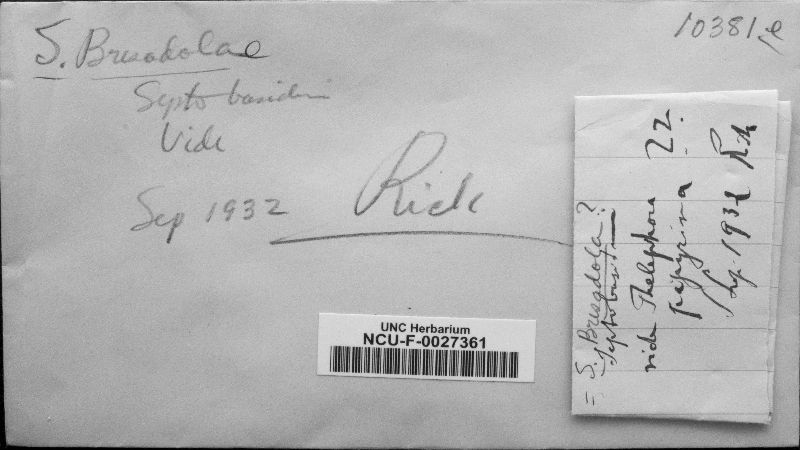 10381e
S. Bresadolae
Septobasidium
Vide
Sep 1932
Rick
UNC Herbarium
NCU-F-0027361
= S. Bresadola?
Septobasid
vide Thelephora
papyrina 22.
Sep. 1932 Rick